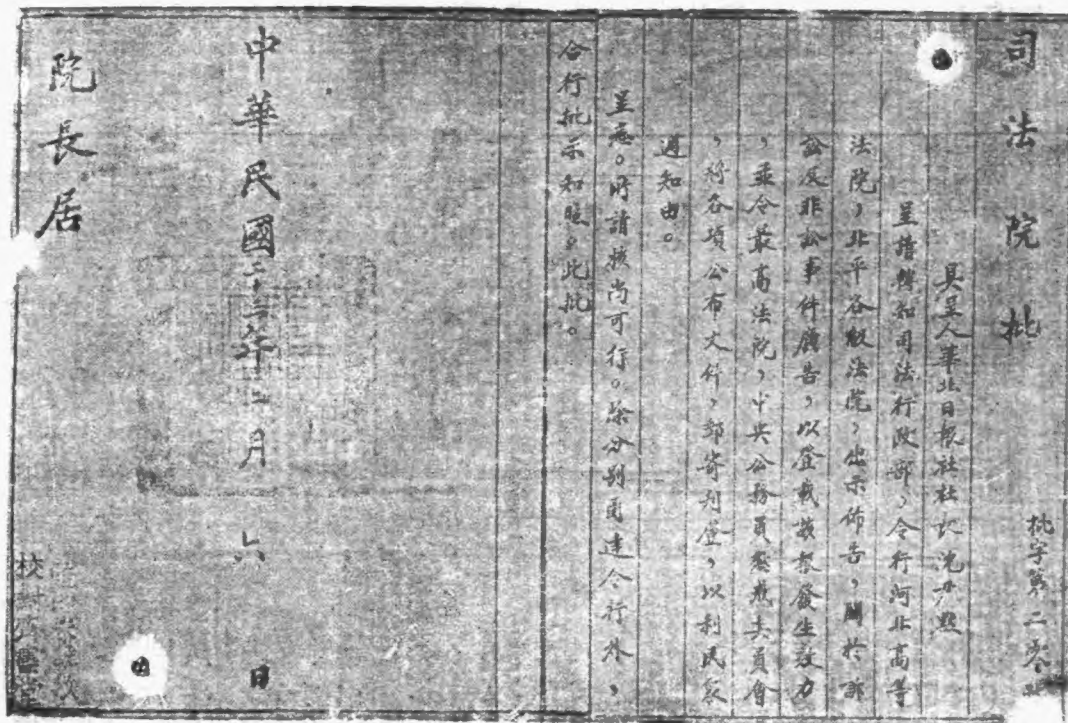 司法院批
批字第二
具呈人華北日報社社長沈
呈請轉知司法行政部，令行河北高等
法院，北平各級法院，出示佈告，關於訴
訟及非訟事件廣告，以登載該報發生效力
，並令最高法院，中央公務員懲戒委員會
，將各項公布文件，郵寄刊登，以利民眾
週知由。
呈悉。所請核尚可行。除分別函達令行外，
合行批示知照，此批。
中華民國二十三年二月六日
院長居
校對